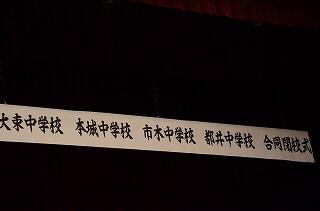 大束中学校　本城中学校　市木中学校　都井中学校　合同閉校式